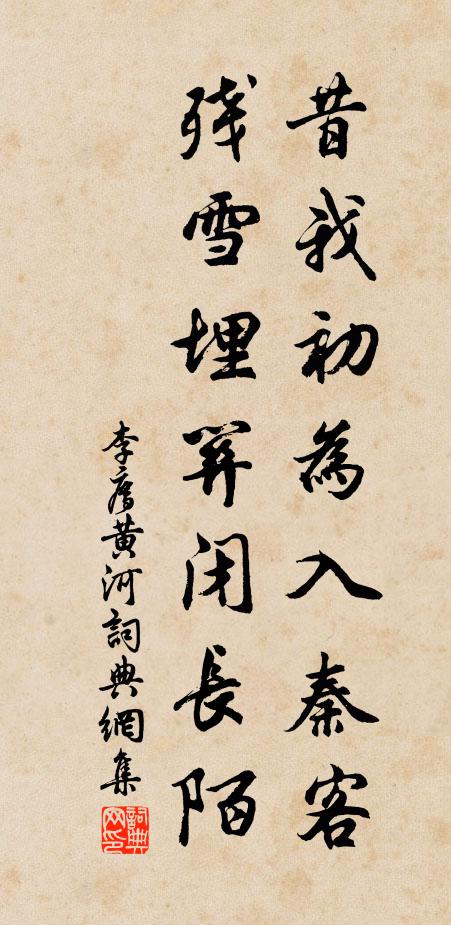 昔我初為入秦客
殘雪埋笄閉長陌
李廌黃河詞典網集
詞典網印